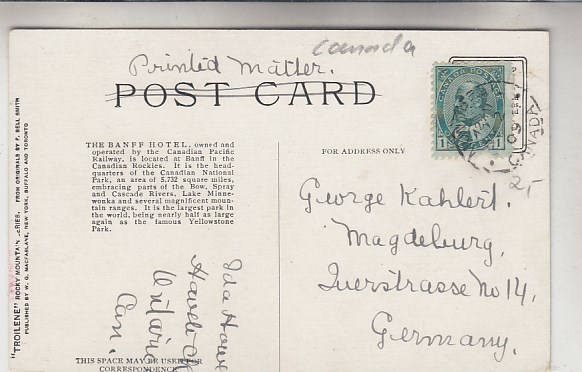 Canada
Printed Matter.
POST CARD
CANADA POSTAGE
1 1
CANADA
2,-
THE BANFF HOTEL, owned and
operated by the Canadian Pacific
Railway, is located at Banff in the
Canadian Rockies. It is the head-
quarters of the Canadian National
Park, an area of 5,732 square miles,
embracing parts of the Bow, Spray
and Cascade Rivers, Lake Minne-
wonka and several magnificent moun-
tain ranges. It is the largest park in
the world, being nearly half as large
again as the famous Yellowstone
Park.
FOR ADDRESS ONLY
George Kahlert.
Magdeburg,
Querstrasse No 14,
Germany.
Ida Howe
Ontario
Can.
THIS SPACE MAY BE USED FOR
CORRESPONDENCE
"TROILENE" ROCKY MOUNTAIN SERIES. FROM ORIGINALS BY F. BELL SMITH
PUBLISHED BY W. G. MACFARLANE, NEW YORK, BUFFALO AND TORONTO